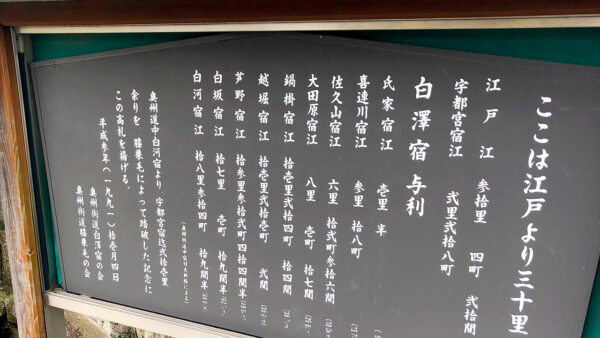 ここは江戸より三十里
江戸江 参拾里 四町 弐拾間
宇都宮宿江 弐里弐拾八町
白澤宿 与利
氏家宿江 壱里 半
喜連川宿江 参里 拾八町
佐久山宿江 六里 拾弐町参拾六間
大田原宿江 八里 壱町 拾七間
鍋掛宿江 拾壱里弐拾四町 拾四間
越堀宿江 拾壱里弐拾壱町 弐間
芦野宿江 拾参里参拾弐町四拾四間半
白坂宿江 拾七里 壱町 拾九間半
白河宿江 拾八里参拾四町 拾九間半
奥州道中白河宿より 宇都宮宿迄弐拾壱里
余りを、膝栗毛によって踏破した記念に
この高札を揚げる。
平成参年(一九九一)拾壱月四日
奥州街道白澤宿の会
奥州街道膝栗毛の会